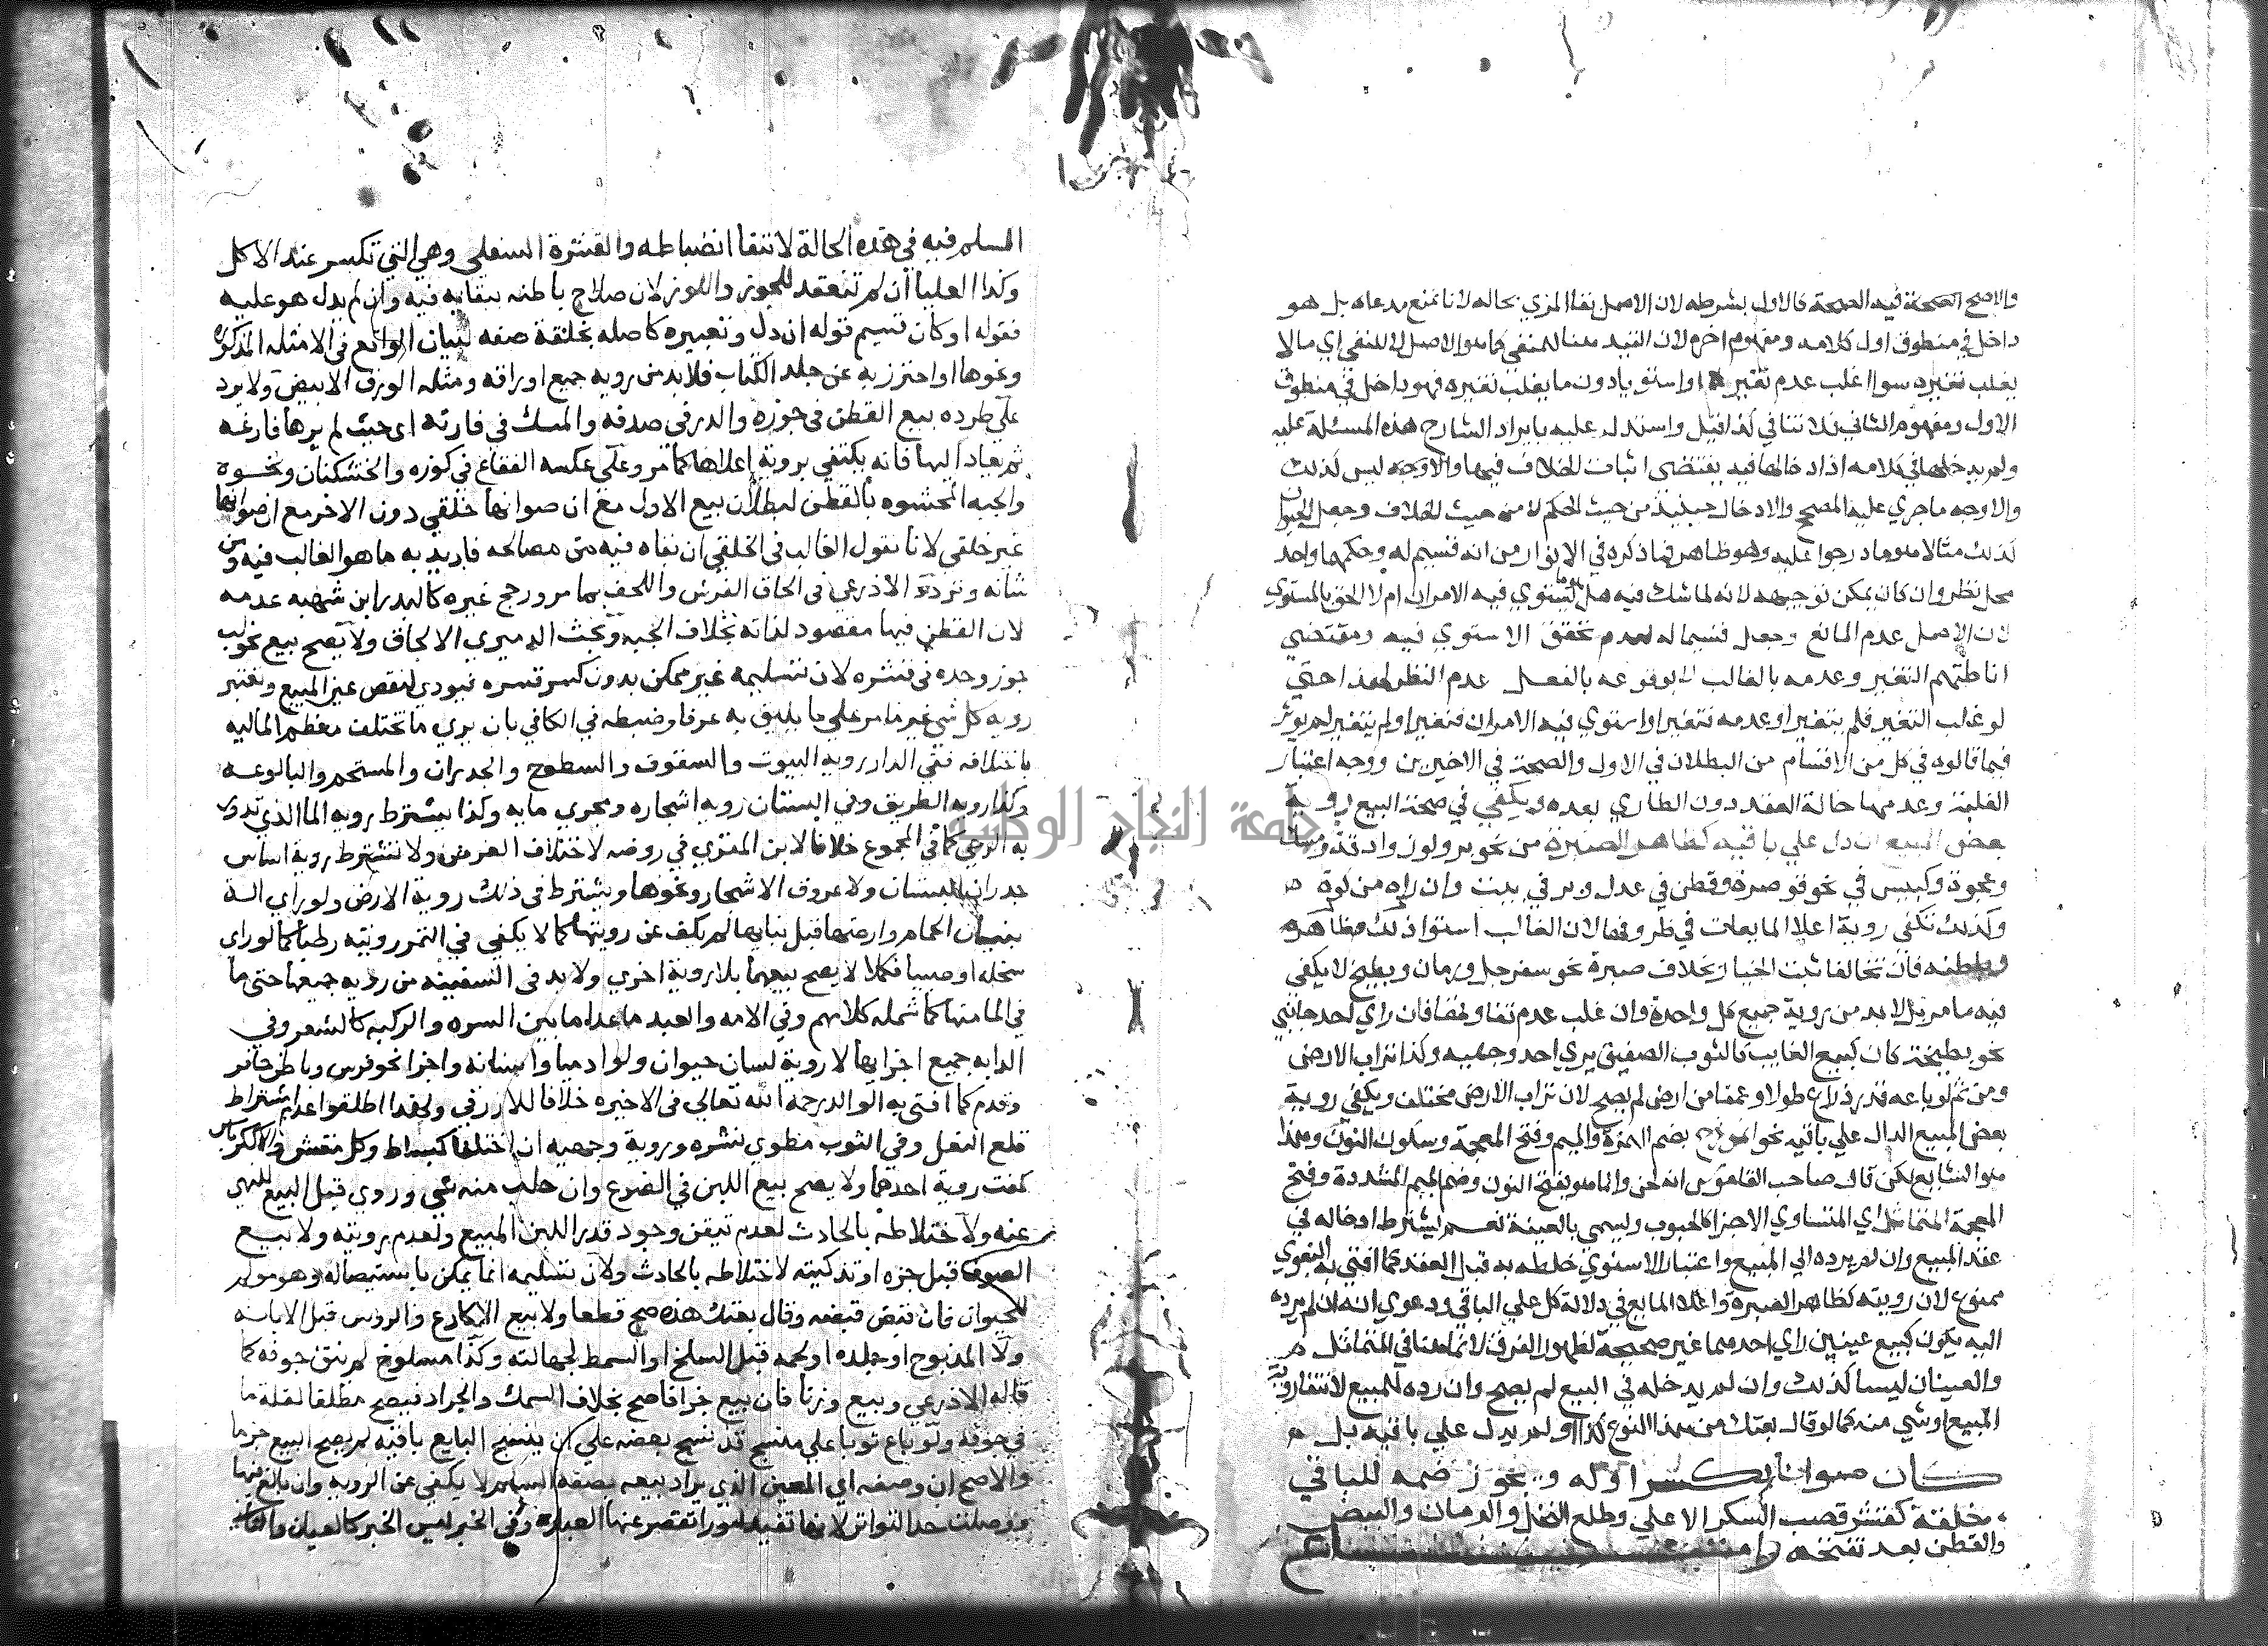 والاصح الصحة فيه الصحة كالاول بشرطه لان الاصل بقا المري بحاله لانا نمنع مدعاه بل هو
داخل في منطوق اول كلامه ومفهوم اخره لان القيد هنا للمنفي كما هو الاصل لا للنفي اي ما لا
يغلب تغيره سوا اغلب عدم تغيره او استويا دون ما يغلب تغيره فهو داخل في منطوق
الاول ومفهوم الثاني فلا تنافي كذا قيل واستدل عليه بايراد الشارح هذه المسئلة عليه
ولم يدخلها في كلامه اذ ادخالها فيه يقتضي اثبات الخلاف فيها والاوجه ليس كذلك
والاوجه ما جري عليه المصحح والادخال حينيذ من حيث الحكم لا من حيث الخلاف وجعل الحيوان
كذلك مثالا هو ما درجوا عليه وهو ظاهر فما ذكره في الانوار من انه قسيم له وحكمهما واحد
محل نظر وان كان يمكن توجيهه لانه لما شك فيه هل يستوي فيه الامران ام لا الحق بالمستوي
لان الاصل عدم المانع وجعل قسيما له لعدم تحقق الاستوي فيه ومقتضي
اناطتهم التغير وعدمه بالغالب لا بوقوعه بالفعل عدم النظر لهذا حتي
لو غلب التغير فلم يتغير او عدمه فتغير او استوي فيه الامران فتغير او لم يتغير لم يوثر
فيما قالوه في كل من الاقسام من البطلان في الاول والصحة في الاخيرين ووجه اعتبار
الغلبة وعدمها حالة العقد دون الطاري بعده ويكفي في صحة البيع روية
بعض المبيع ان دل علي باقيه كظاهر الصبرة من نحو بر ولوز وادقة ومسك
وعجوة وكبيس في نحو قوصرة وقطن في عدل وبر في بيت وان راه من كوة
وكذلك تكفي روية اعلا المايعات في ظروفها لان الغالب استوا ذلك فظاهره
وباطنه فان تخالفا ثبت الخيار بخلاف صبرة نحو سفرجل ورمان وبطيخ لا يكفي
فيه ما مر بل لا بد من روية جميع كل واحدة وان غلب عدم تفاوتها فان راي احد جانبي
نحو بطيخة كان كبيع الغايب كالثوب الصفيق يري احد وجهيه وكذا تراب الارض
ومن ثم لو باعه قدر ذراع طولا وعمقا من ارض لم يصح لان تراب الارض مختلف ويكفي روية
بعض المبيع الدال علي باقيه نحو انموذج بضم الهمزة والميم وفتح المعجمة وسكون النون وهذا
هو الشايع لكن قال صاحب القاموس انه لحن وانما هو بفتح النون وضم الميم المشددة وفتح
المعجمة المتماثل اي المتساوي الاجزا كالحبوب ويسمي بالعينة نعم يشترط ادخاله في
عقد المبيع وان لم يرده الي المبيع واعتبار الاسنوي خلطه به قبل العقد كما افتي به البغوي
ممنوع لان رويته كظاهر الصبرة واعلا المايع في دلالة كل علي الباقي ودعوي انه ان لم يرده
اليه يكون كبيع عينين راي احدهما غير صحيحة لظهور الفرق لانا هنا في المتماثل
والعينان ليسا كذلك وان لم يدخله في البيع لم يصح وان رده للمبيع لانتفا روية
المبيع او شي منه كما لو قال بعتك من هذا النوع كذا او لم يدل علي باقيه بل
كان صوانا بكسر اوله ويجوز ضمه للباقي
خلقة كقشر قصب السكر الاعلي وطلع النخل والرمان والبيض
والقطن بعد تفتحه
المسلم فيه في هذه الحالة لانتفا انضباطه والقشرة السفلي وهي التي تكسر عند الاكل
وكذا العليا ان لم تنعقد للجوز واللوز لان صلاح باطنه ببقايه فيه وان لم يدل هو عليه
فقوله او كان قسيم قوله ان دل وتعبيره كاصله بخلقة صفه لبيان الواقع في الامثله المذكوره
ونحوها او احترز به عن جلد الكتاب فلا بد من رويه جميع اوراقه ومثله الورق الابيض ولا يرد
علي طرده بيع القطن في جوزه والدر في صدفه والمسك في فارته اي حيث لم يرها فارغه
ثم يعاد اليها فانه يكتفي بروية اعلاها كما مر وعلي عكسه الفقاع في كوزه والخشكنان ونحوه
والجبه المحشوه بالقطن لبطلان بيع الاول مع ان صوانها خلقي دون الاخر مع ان صوانها
غير خلقي لانا نقول الغالب في الخلقي ان بقاه فيه من مصالحه فاريد به ما هو الغالب فيه ومن
شانه وتردد الاذرعي في الحاق الفرش واللحف بما مر ورجح غيره كالبدر ابن شهبه عدمه
لان القطن فيها مقصود لذاته بخلاف الجبه وبحث الدميري الالحاق ولا يصح بيع نحو لب
جوز وحده في قشره لان تسليمه غير ممكن بدون كسر قسره فيودي لنقص عين المبيع وتعتبر
رويه كل شي غير ما مر علي ما يليق به عرفا وضبطه في الكافي بان يري ما تختلف معظم الماليه
باختلافه ففي الدار رويه البيوت والسقوف والسطوح والجدران والمستحم والبالوعه
وكذا رويه الطريق وفي البستان رويه اشجاره ومجري مايه وكذا يشترط رويه الما الذي تدور
به الرحي كما في المجموع خلافا لابن المقري في روضه لاختلاف الغرض ولا تشترط روية اساس
جدران البستان ولا عروق الاشجار ونحوها ويشترط في ذلك روية الارض ولو راي الة
بنيان الحمام وارضها قبل بنايها لم يكف عن رويتها كما لا يكفي في التمر رويته رطبا كما لو راي
سخله او صبيا فكملا لا يصح بيعهما بلا روية اخري ولا بد في السفينه من رويه جميعها حتي ما
في الما منها كما شمله كلامهم وفي الامه والعبد ما عدا ما بين السره والركبه كالشعر وفي
الدابه جميع اجزايها لا روية لسان حيوان ولو ادميا واسنانه واجزا نحو فرس وباطن حافر
وقدم كما افتي به الوالد رحمه الله تعالي في الاخيره خلافا للازرقي ولهذا اطلقوا عدم اشتراط
قلع النعل وفي الثوب مطوي نشره وروية وجهيه ان اختلفا كبساط وكل منقش والا ككرباس
كفت روية احدهما ولا يصح بيع اللبن في الضرع وان حلب منه شي وروي قبل البيع للنهي
عنه ولاختلاطه بالحادث لعدم تيقن وجود قدر اللبن المبيع ولعدم رويته ولا بيع
الصوف قبل جزه او تذكيته لاختلاطه بالحادث ولان تسليمه انما يمكن باستيصاله وهو مولم
للحيوان فان قبض قبضه وقال بعتك هذه صح قطعا ولا بيع الاكارع والروس قبل الابانه
ولا المذبوح او جلده او لحمه قبل السلخ او السمط لجهالته وكذا مسلوخ لم ينق جوفه كما
قاله الاذرعي وبيع وزنا فان بيع جزافا صح بخلاف السمك والجراد فيصح مطلقا لقلة ما
في جوفه ولو باع ثوبا علي منسج قد نسج بعضه علي ان ينسج البايع باقيه لم يصح البيع جزما
والاصح ان وصفه اي المعين الذي يراد بيعه بصفة السلم لا يكفي عن الرويه وان بالغ فيها
ووصلت حد التواتر لانها تفيد امورا تقصر عنها العباره وفي الخبر ليس الخبر كالعيان والثاني
جامعة النجاح الوطنية